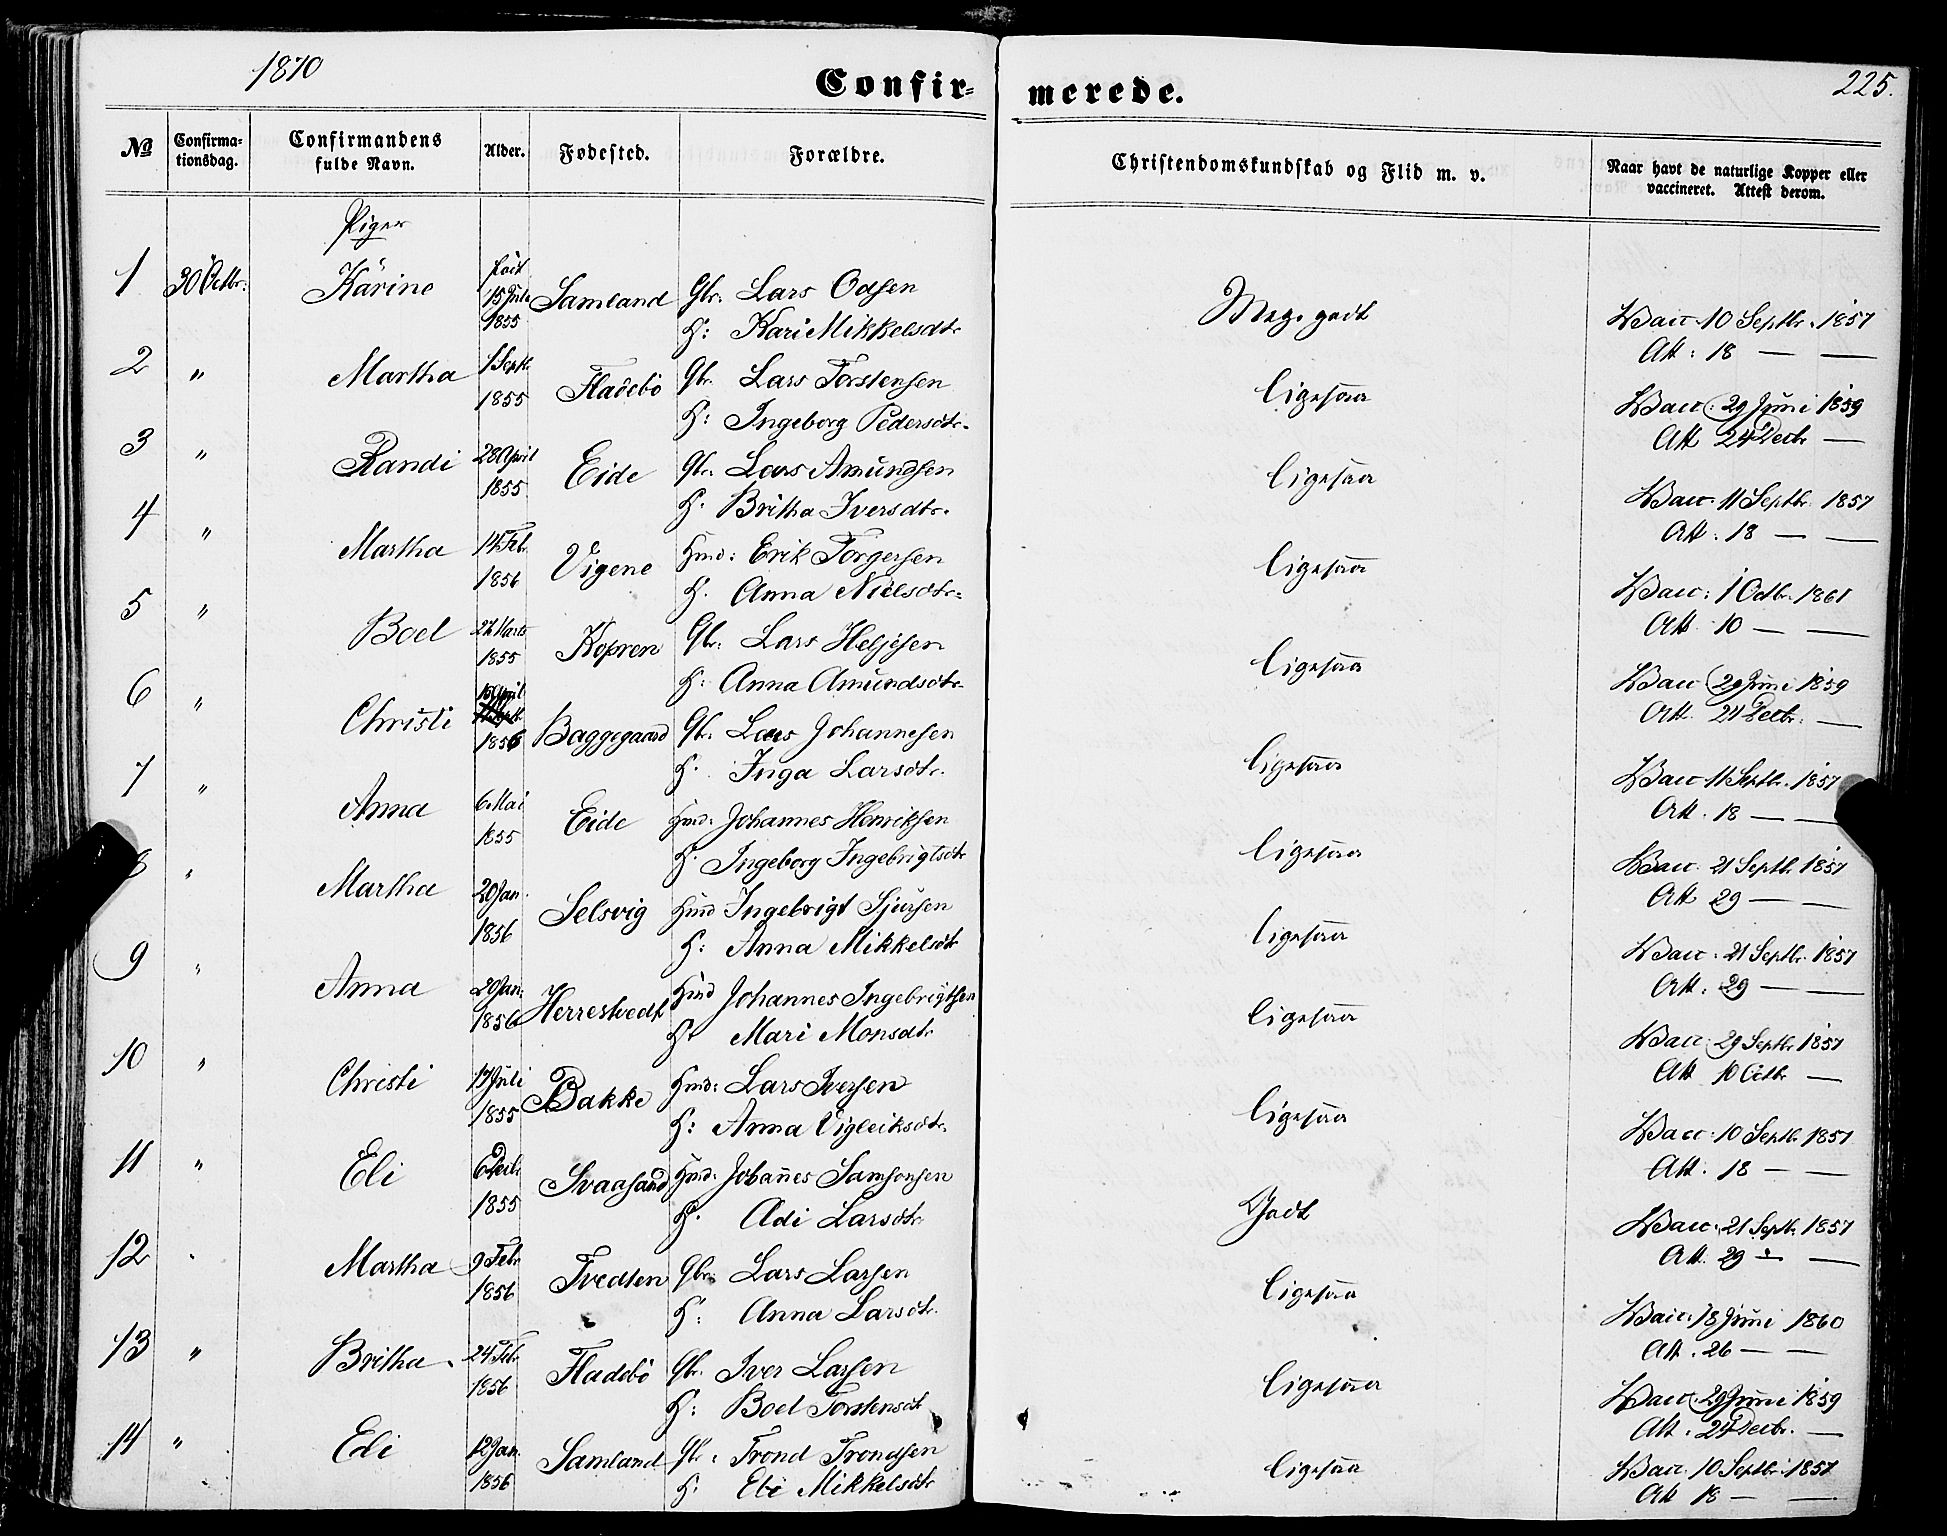 1870
Confir-
merede.
225.
No
Confirma-
tionsdag.
Confirmandens
fulde Navn.
Alder.
Fødested.
Forældre.
Christendomskundskab og Flid m. v.
Naar havt de naturlige Kopper eller
vaccineret. Attest derom.
Piger
1 30 Octbr: Karine født 15 Juli 1855 Samland Gbr. Lars Odsen
H: Kari Mikkelsdtr
Meg. godt
Vacc. 10 Septbr. 1857
Att: 18 — —
2 " Martha 1 Septb. 1855 Fladebø Gbr. Lars Torstensen
H: Ingeborg Pedersdtr.
ligesaa
Vacc: 29 Juni 1859
Att 24 Decbr —
3 " Randi 28 April 1855 Eide Gbr. Lars Amundsen
H. Britha Iversdtr.
ligesaa
Vacc. 11 Septbr. 1857
Att: 18 — —
4 " Martha 14 Febr. 1856 Vigene Huusd: Erik Torgersen
H. Anna Nielsdtr.
ligesaa
Vacc: 1 Octbr. 1861
Att. 10 — —
5 " Boel 27 Marts 1855 Kopren Gbr. Lars Heljesen
H: Anna Amundsdtr.
ligesaa
Vacc 29 Juni 1859
Att. 24 Decbr. —
6 " Christi 15 April 1856 Baggegaard Gbr. Lars Johannesen
H. Inga Larsdtr.
ligesaa
Vacc 11 Septbr. 1857
Att. 18 — —
7 " Anna 6 Mai 1855 Eide Huusd: Johannes Henriksen
H. Ingeborg Ingebrigtsdtr
ligesaa
Vacc. 21 Septb. 1857
Att 29 — —
8 " Martha 20 Jan. 1856 Selsvig Huusd Ingebrigt Sjursen
H: Anna Mikkelsdtr
ligesaa
Vacc. 21 Septbr. 1857
Att: 29 — —
9 " Anna 20 Jan. 1856 Herrestvedt Huusd Johannes Ingebrigtsen
H. Mari Monsdtr
ligesaa
Vacc: 29 Septbr 1857
Att 10 Octbr —
10 " Christi 17 Juli 1855 Bakke Huusd: Lars Iversen
H: Anna Vigleiksdtr.
ligesaa
Vacc. 10 Septb. 1857
Att. 18 — —
11 " Eli 6 Decbr 1855 Svaasand Huusd: Johannes Samsonsen
H. Adi Larsdtr
Godt
Vacc. 21 Septb. 1857
Att. 29 — —
12 . Martha 9 Febr 1856 Tvedten Gbr. Lars Larsen
H: Anna Larsdtr.
ligesaa
Vacc. 18 Juni 1860
Att. 26 — —
13 " Britha 24 Febr. 1856 Fladebø Gbr. Iver Larsen
H: Boel Torstensdt
ligesaa
Vacc. 29 Juni 1859
Att. 24 Decbr. —
14 " Eli 12 Jan. 1856 Samland Gbr: Trond Trondsen
H: Eli Mikkelsdtr
ligesaa
Vacc. 10 Septbr. 1857
Att 18 — —